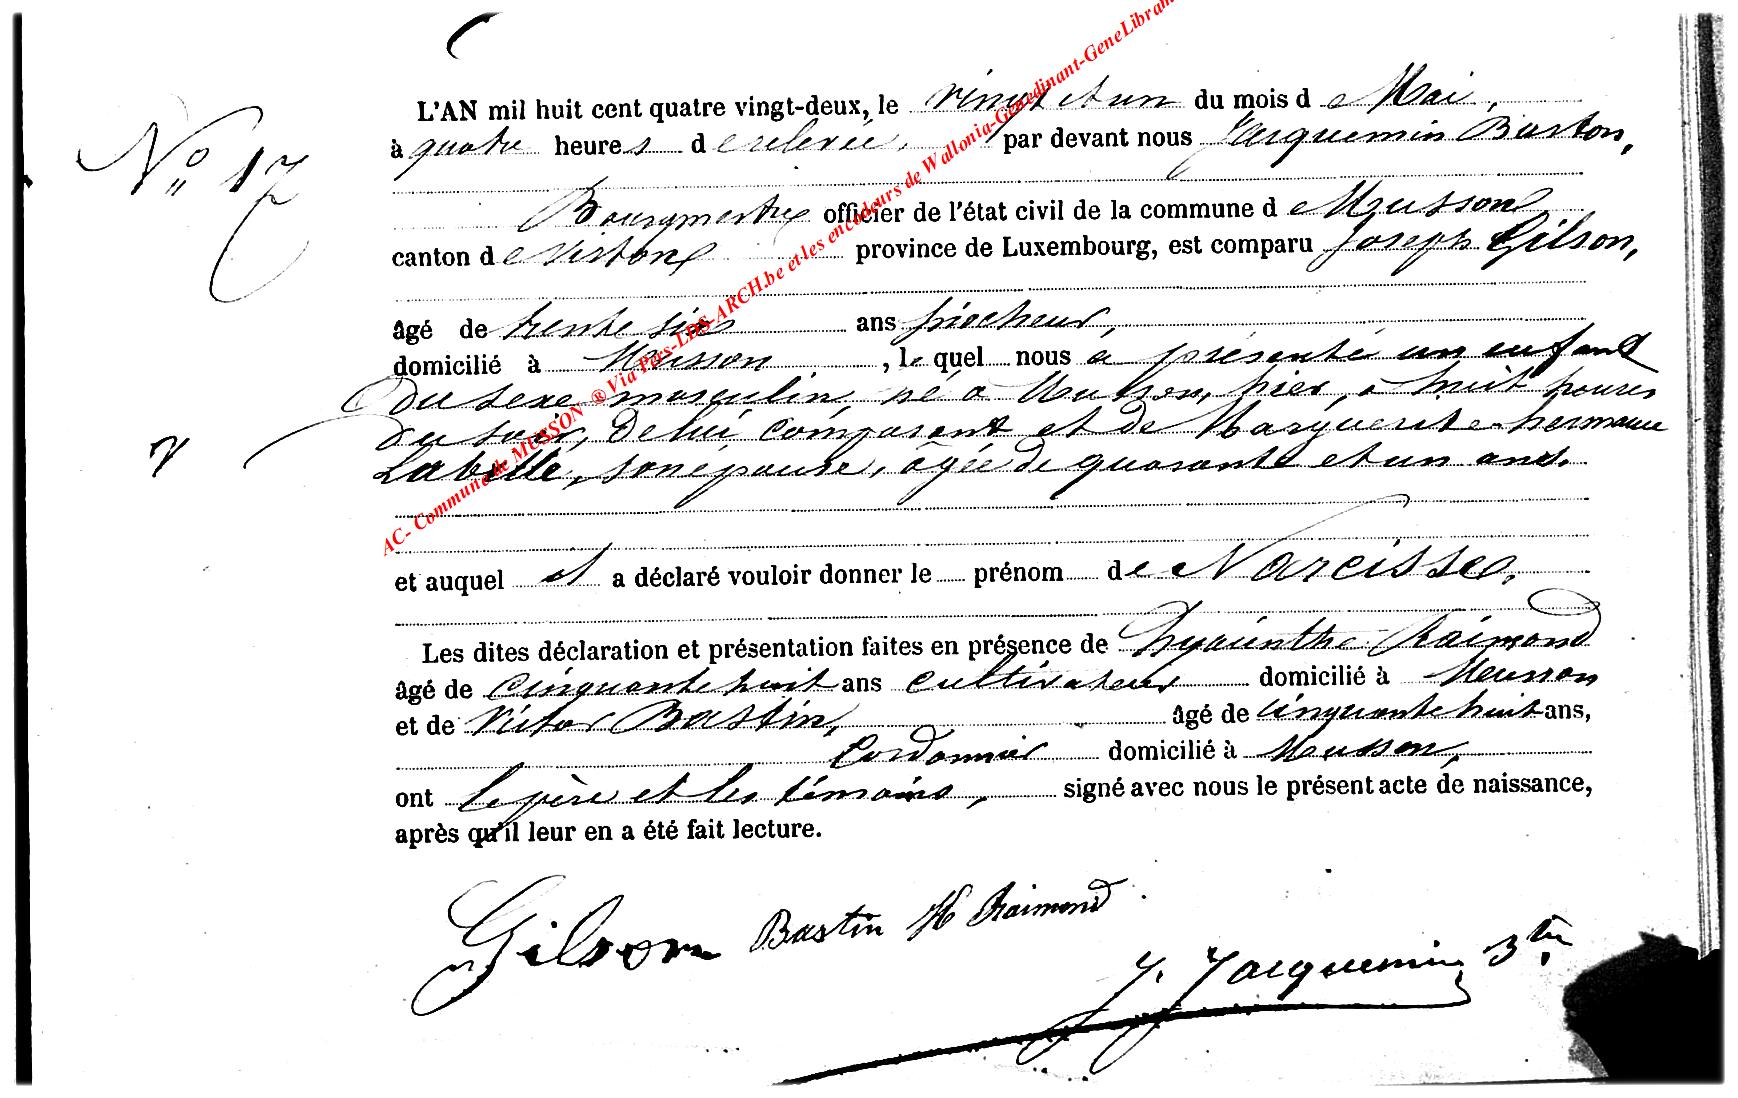 L'AN mil huit cent quatre vingt-deux, le vingt et un du mois de Mai,
N° 17
à quatre heures de relevée, par devant nous Jacquemin Baston,
Bourgmestre officier de l'état civil de la commune de Musson
canton de Virton province de Luxembourg, est comparu Joseph Gilson,
âgé de trente six ans piocheur,
domicilié à Musson, le quel nous a présenté un enfant
du sexe masculin, né à Musson, hier, à huit heures
du soir, de lui comparant et de Marguerite hermance
Labille, son épouse, âgée de quarante et un ans.
et auquel il a déclaré vouloir donner le prénom de Narcisse.
Les dites déclaration et présentation faites en présence de hyacinthe Raimond
âgé de cinquante huit ans cultivateur domicilié à Musson
et de Victor Bastin, âgé de cinquante huit ans,
Cordonnier domicilié à Musson,
ont le père et les témoins, signé avec nous le présent acte de naissance,
après qu'il leur en a été fait lecture.
Gilson Bastin H Raimond
J. Jacquemin Btn
AC- Commune de MUSSON ® Via Pers-LDS-ARCH.be et les encodeurs de Wallonia-Genedinant-GeneLibran